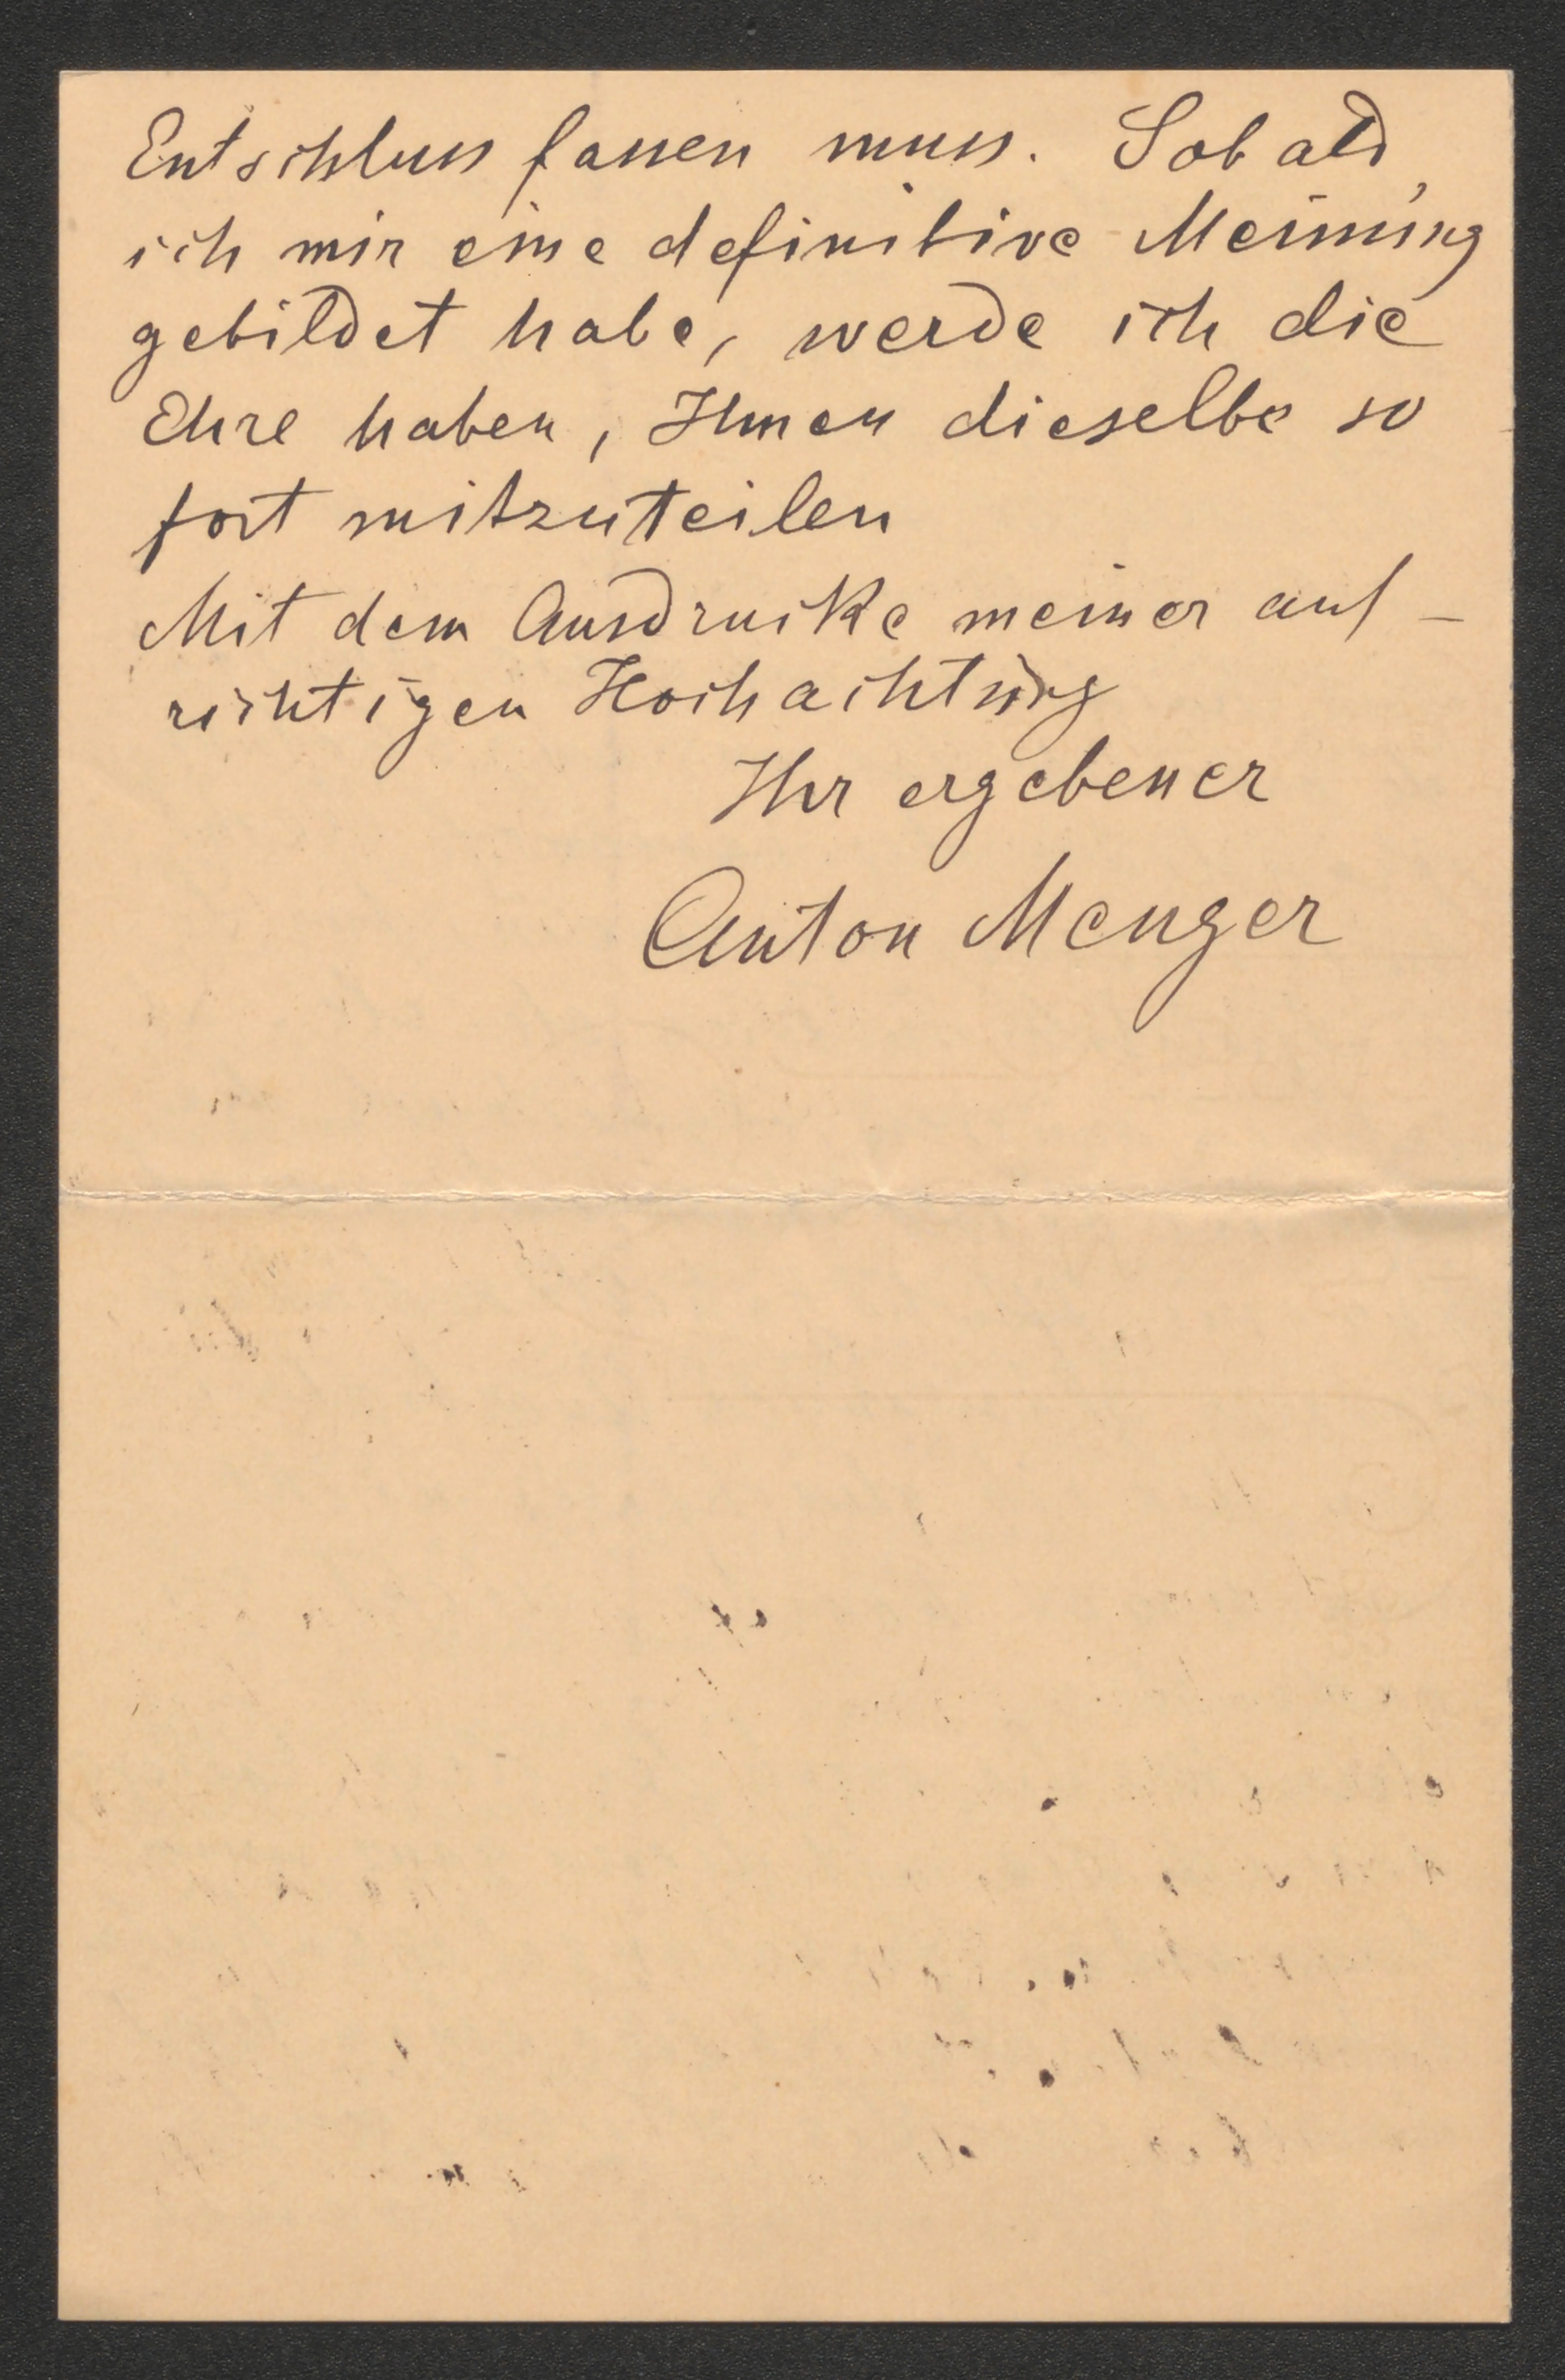 Entschluss fassen muss. Sobald
ich mir eine definitive Meinung
gebildet habe, werde ich die
Ehre haben, Ihnen dieselbe so
fort mitzuteilen
Mit dem Ausdrucke meiner auf-
richtigen Hochachtung
Ihr ergebener
Anton Menger